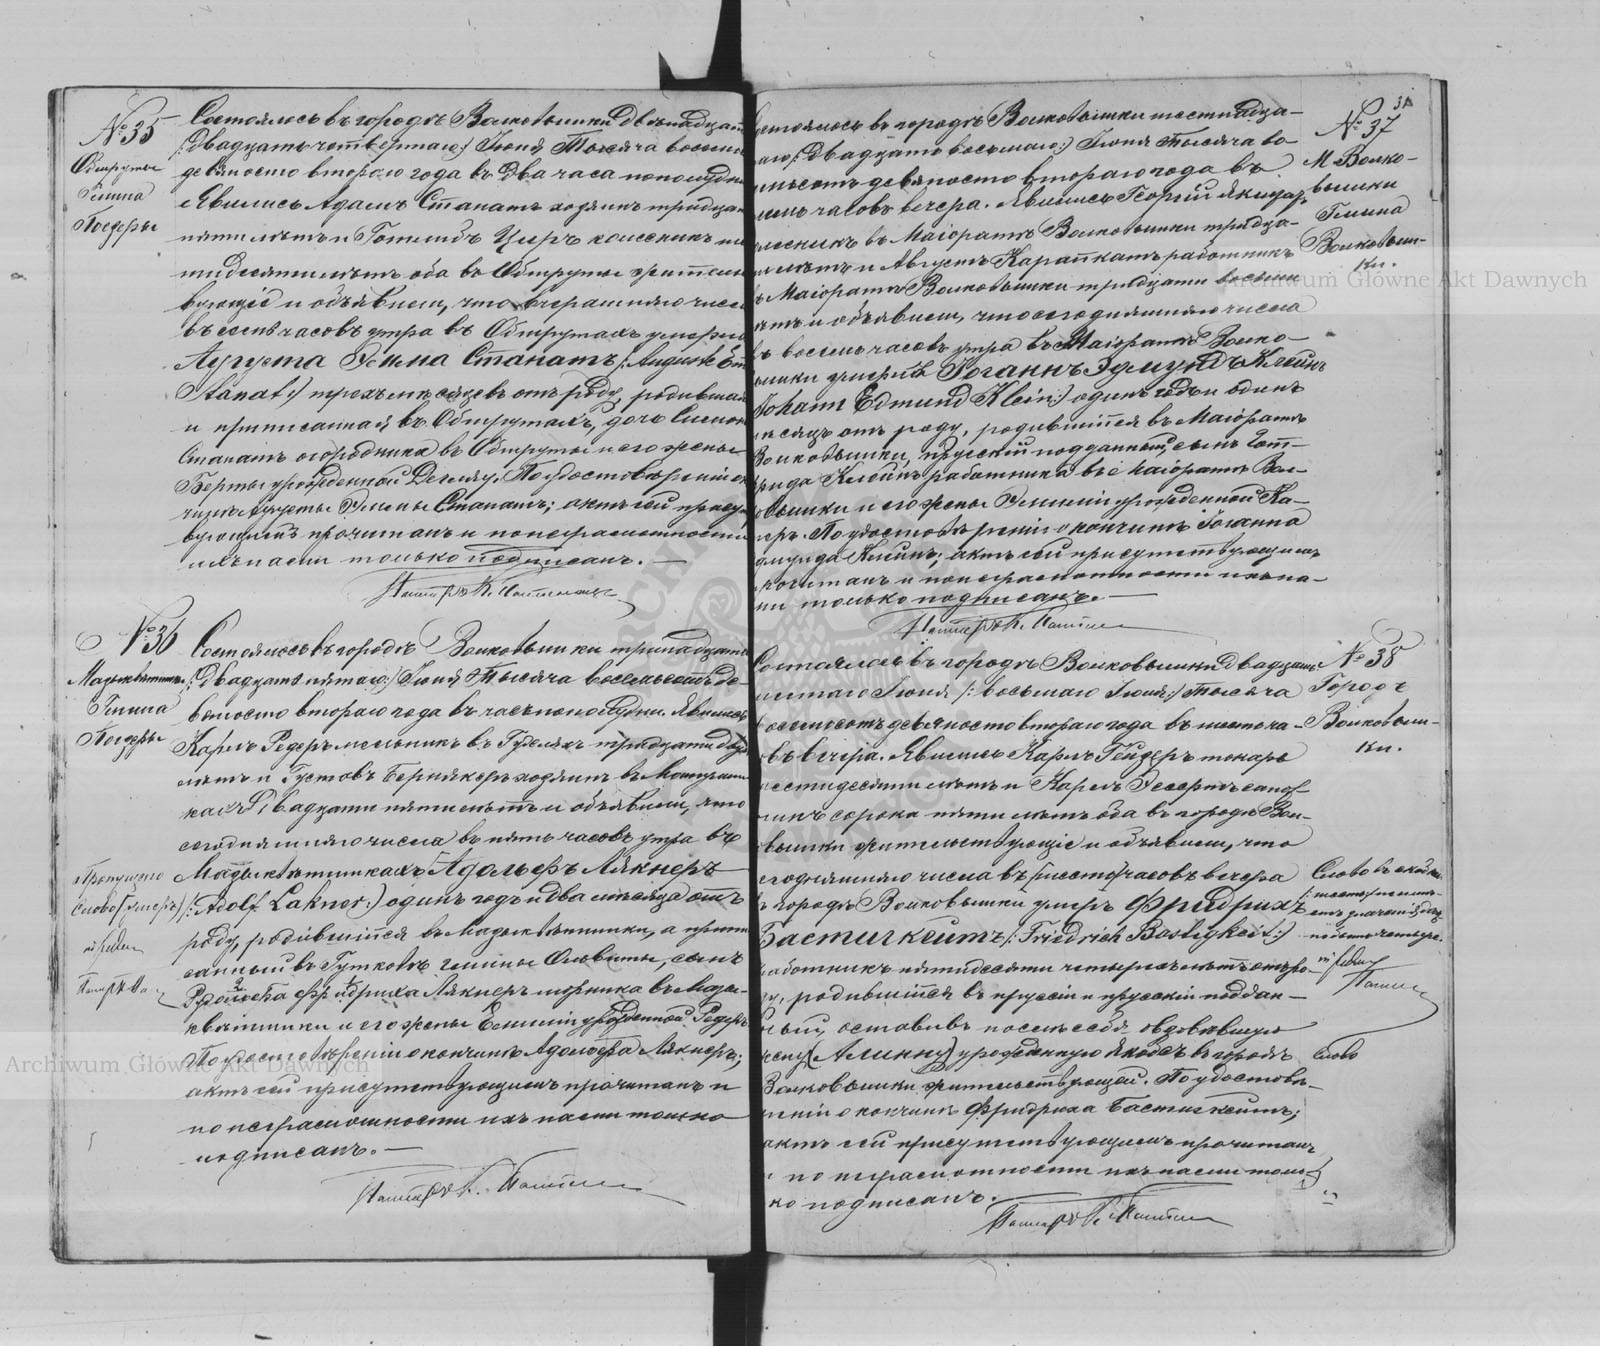 № 35
Обшруты
Гмина
Погеры
Состоялось въ городѣ Волковышки двѣнадцат
/:двадцать четвертаго:/ Іюня Тысяча восемь
девяносто втораго года въ два часа пополудни
Явились Адамъ Станатъ хозяинъ тридцат
пяти лѣтъ и Готлибъ Циръ колесникъ
десяти лѣтъ оба въ Обшруты жительс
вующіе и объявили, что вчерашняго числа
въ семь часовъ утра въ Обшрутахъ умерла
Аугуста Эмма Станатъ /:Auguste Em
Stanat:/ трехъ мѣсяцевъ отъ роду, родившая
и приписанная въ Обшрутахъ, дочь
Станатъ огородника въ Обшруты и его жены
Берты урожденной По удостовѣреніи о
чинѣ Аугусты Эммы Станатъ; актъ сей присут
вующимъ прочитанъ и по неграмотности
ихъ нами только подписанъ. —
Пасторъ К.
№ 36
Гмина
Погеры
Состоялось въ городѣ Волковышки тринадцат
/:двадцать пятаго:/ Іюня Тысяча восемьсотъ де-
вяносто втораго года въ часъ пополудни. Явились
Карлъ Редеръ мельникъ въ тридцати двух
лѣтъ и Густавъ хозяинъ въ
кахъ двадцати пяти лѣтъ и объявили, что
сегодняшняго числа въ пять часовъ утра въ
Адольфъ Лякнеръ
/:Adolf Lakner:/ одинъ годъ и два мѣсяца отъ
роду, родившійся въ а припи
санный въ гмины сынъ
Фридриха Лякнеръ въ
и его жены Емиліи урожденной Редеръ
По удостовѣреніи о кончинѣ Адольфа Лякнеръ;
актъ сей присутствующимъ прочитанъ и
по неграмотности ихъ нами только
подписанъ. —
Пасторъ К.
Пропущено
слово (умеръ)
31
№ 37
М Волко-
вышки
Гмина
Волковыш-
ки.
остоялось въ городѣ Волковышки шестнадца-
аго /:двадцать восьмаго:/ Іюня Тысяча во-
мьсотъ девяносто втораго года въ
часовъ вечера. Явились Георгій
въ Маіоратѣ Волковышки тридца-
лѣтъ и Августъ Карапкатъ работникъ
ъ Маіоратѣ Волковышки тридцати восьми
ѣтъ и объявили, что сегодняшняго числа
ъ восемь часовъ утра въ Маіоратѣ Волко-
вышки умеръ Іоганнъ Эдмундъ Клейнъ
Johann Edmund Klein:/ одинъ годъ и одинъ
ѣсяцъ отъ роду, родившійся въ Маіоратѣ
Волковышки, прусскій подданный, сынъ Гот-
рида Клейнъ работника въ Маіоратѣ Вол-
овышки и его жены Эмиліи урожденной Ка-
По удостовѣреніи о кончинѣ Іоганна
дмунда Клейнъ; актъ сей присутствующимъ
рочитанъ и по неграмотности ихъ на-
ми только подписанъ. —
Пасторъ К.
№ 38
Городъ
Волковыш-
ки.
Состоялось въ городѣ Волковышки двадцать
шестаго Іюня /:восьмаго Іюля:/ Тысяча
восемьсотъ девяносто втораго года въ шесть ча-
овъ вечера. Явились Карлъ Гейзеръ токарь
шестидесяти лѣтъ и Карлъ сапож
никъ сорока пяти лѣтъ оба въ городѣ Вол-
овышки жительствующіе и объявили, что
егодняшняго числа въ /шесть/ часовъ вечера
ъ городѣ Волковышки умеръ Фридрихъ
Бастигкейтъ /:Friedrich Bastigkeit:/
работникъ пятидесяти четырехъ лѣтъ отъ ро-
у, родившійся въ Пруссіи и прусскій поддан-
ный, оставивъ послѣ себя овдовѣвшую
жену /Алину/ урожденную въ городѣ
Волковышки жительствующей. По удостовѣ-
реніи о кончинѣ Фридриха Бастигкейтъ;
актъ сей присутствующимъ прочитанъ
и по неграмотности ихъ нами толь-
ко подписанъ. —
Пасторъ К.
Слово въ
слово
Archiwum Główne Akt Dawnych
Archiwum Główne Akt Dawnych